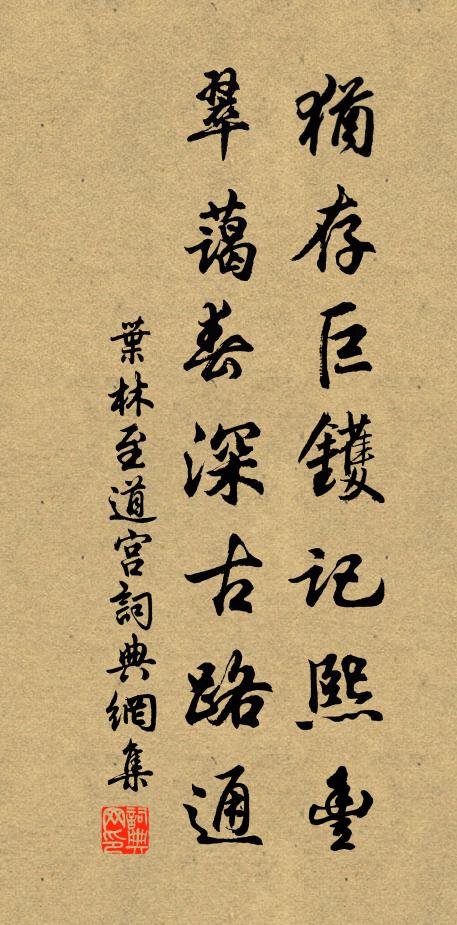 猶存巨鑊記熙豐
翠藹春深古路通
葉林至道宮詞典網集
詞典網印